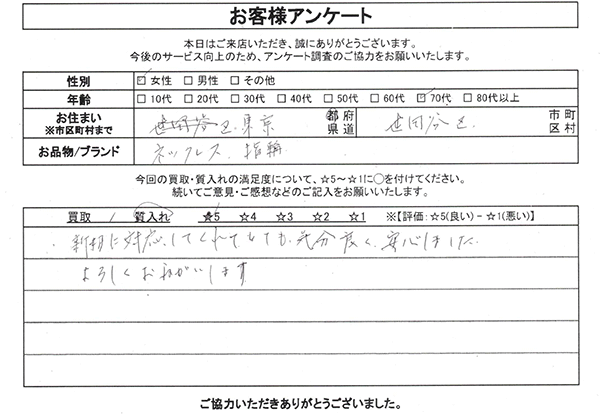 お客様アンケート
本日はご来店いただき、誠にありがとうございます。
今後のサービス向上のため、アンケート調査のご協力をお願いいたします。
性別 ☑女性 □男性 □その他
年齢 □10代 □20代 □30代 □40代 □50代 □60代 ☑70代 □80代以上
お住まい 世田谷区 東京 都府 世田谷区 市町
※市区町村まで 県道 区村
お品物/ブランド ネックレス、指輪
今回の買取・質入れの満足度について、☆5～☆1に○を付けてください。
続いてご意見・ご感想などのご記入をお願いいたします。
買取 / 質入れ ☆5 ☆4 ☆3 ☆2 ☆1 ※【評価:☆5(良い)－☆1(悪い)】
親切に対応してくれてとても気分良く、安心しました
よろしくおねがいします
ご協力いただきありがとうございました。